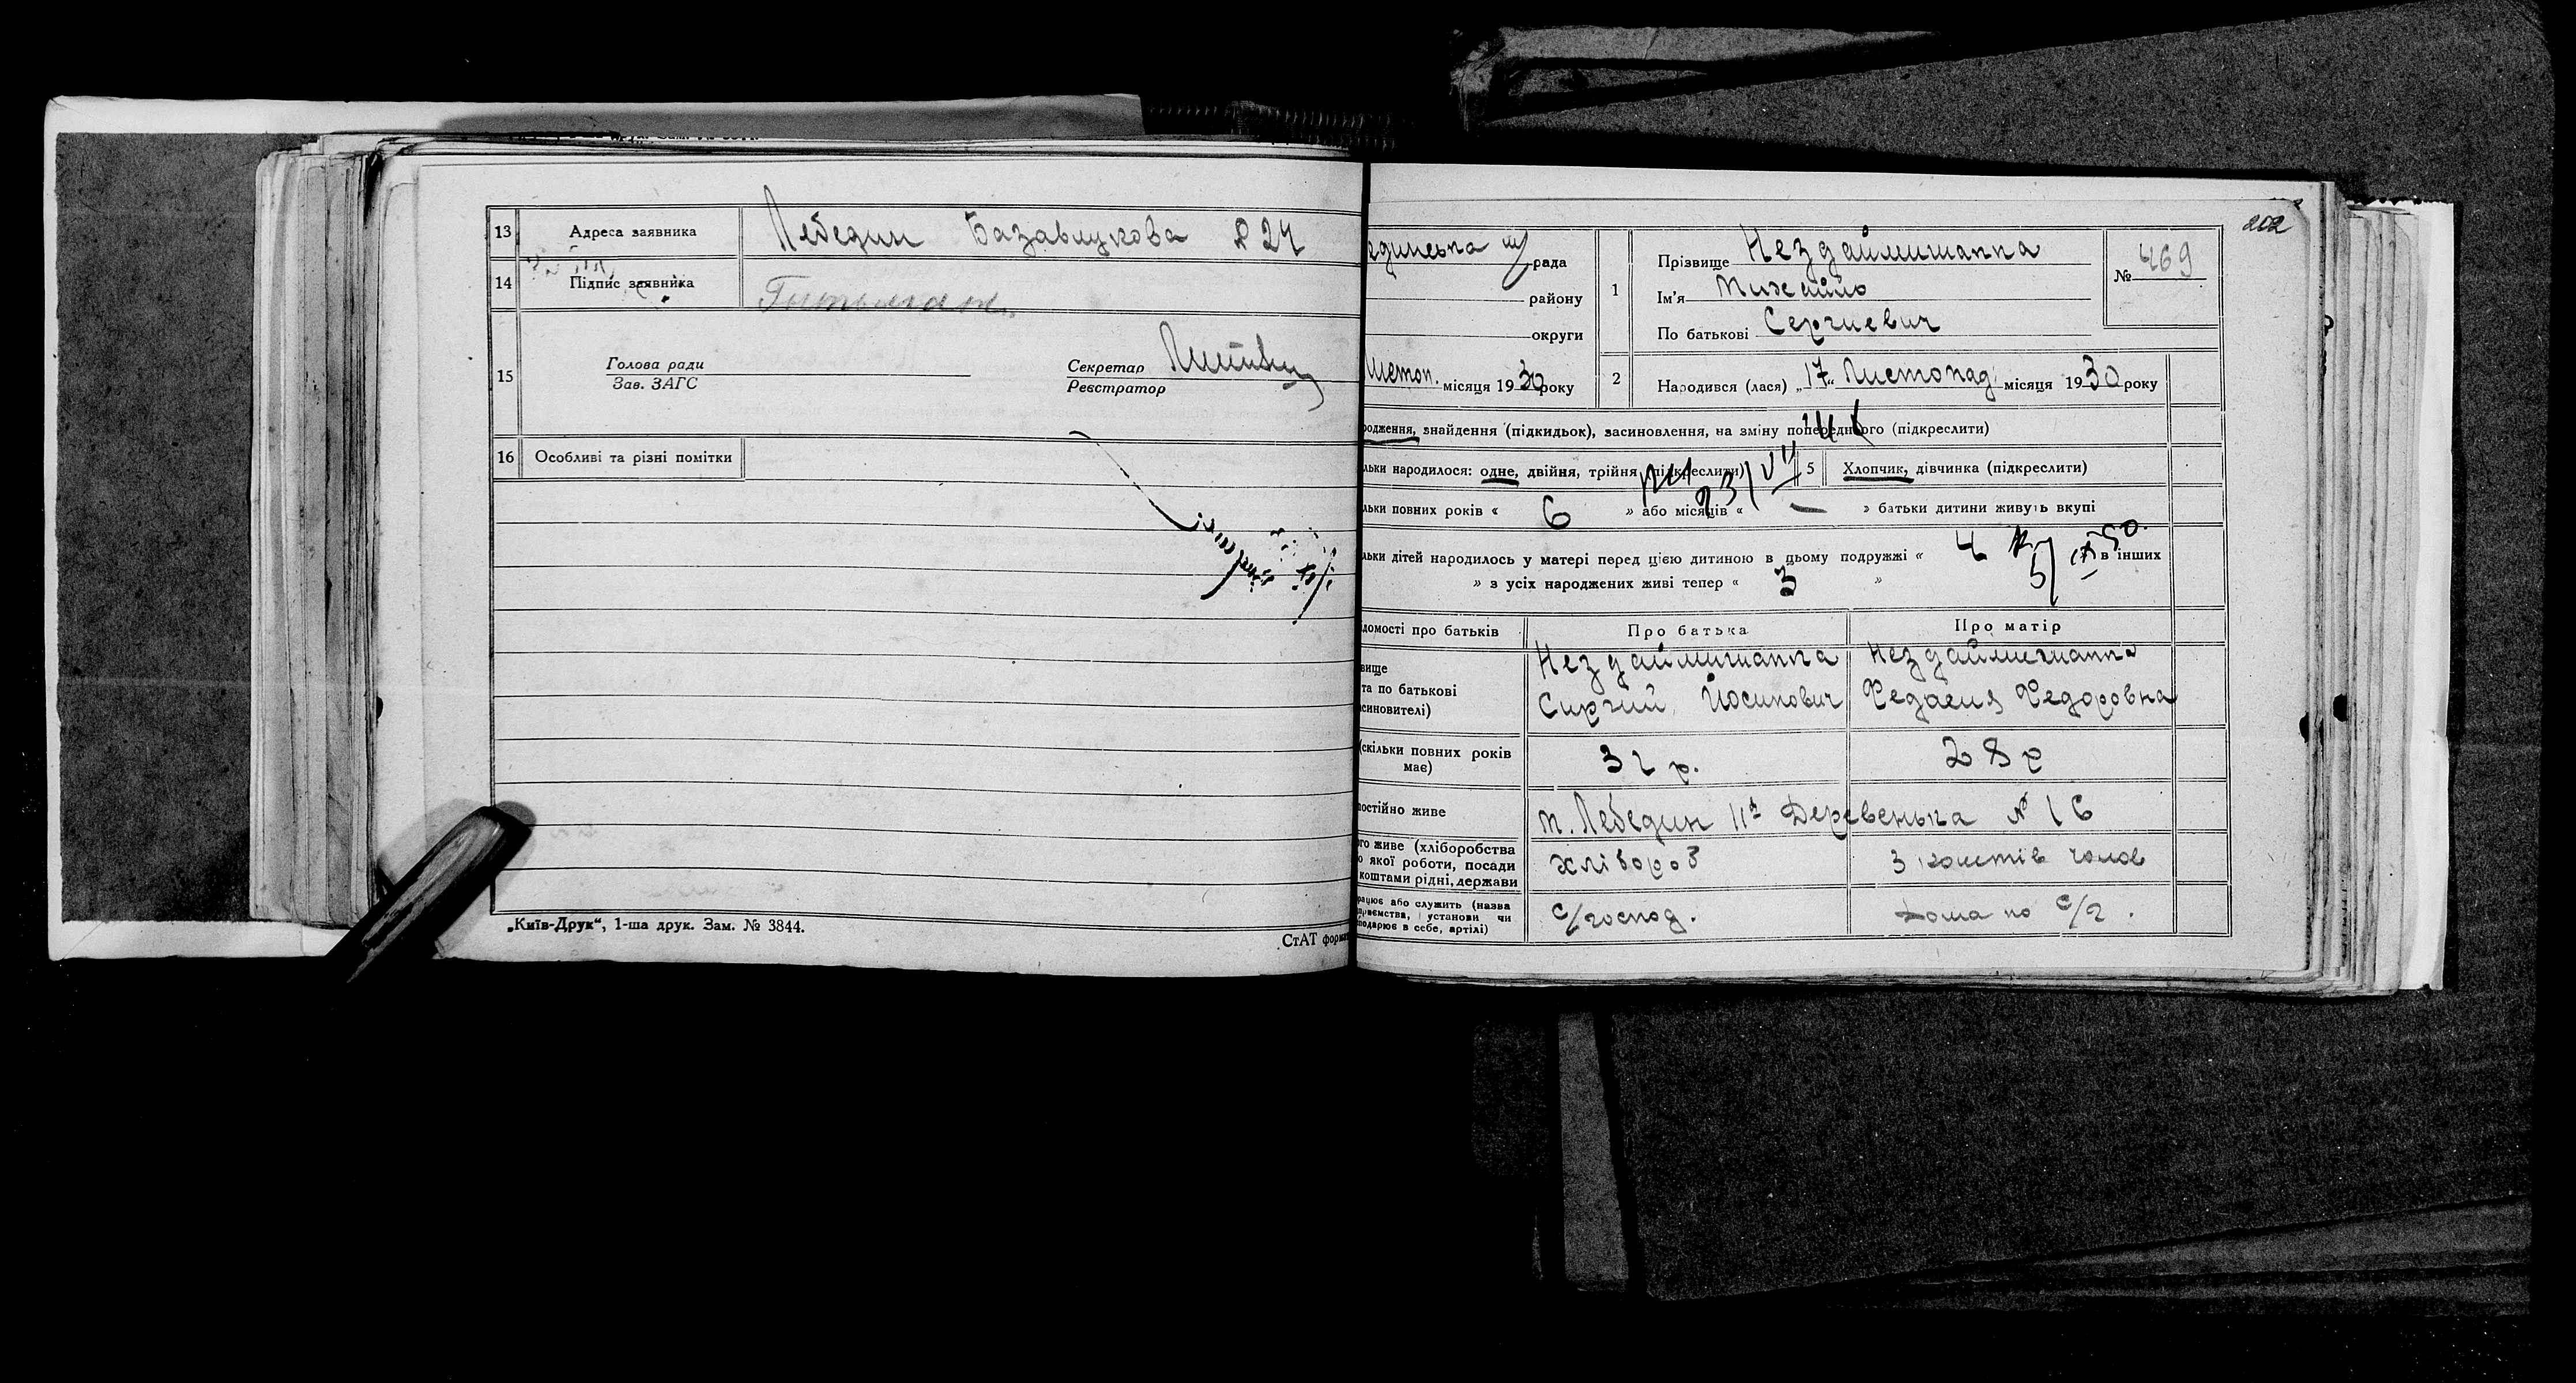 13 Адреса заявника Лебедин Базавлукова № 24
14 Підпис заявника
15 Голова ради
Зав. ЗАГС
Секретар
Реєстратор
16 Особливі та різні помітки
„Київ-Друк“, 1-ша друк. Зам. № 3844.
СтАТ форма
202
единська рада
району
округи
Листоп. місяця 1930 року
1 Прізвище Нездайминапка
Ім'я Михайло
По батькові Сергиевич
№ 469
2 Народився (лася) „17“ Листопад місяця 1930 року
одження, знайдення (підкидьок), засиновлення, на зміну попереднього (підкреслити)
льки народилося: одне, двійня, трійня (підкреслити) 5 Хлопчик, дівчинка (підкреслити)
льки повних років « 6 » або місяців « — » батьки дитини живуть вкупі
льки дітей народилось у матері перед цією дитиною в цьому подружжі « 4 в інших
» з усіх народжених живі тепер « 3 »
домості про батьків Про батька Про матір
вище
та по батькові
синовителі)
Нездайминапка
Сиргий Йосипович
Нездайминапка
Федосія Федоровна
(скільки повних років
має)
32 р. 28 р
постійно живе м. Лебедин Деревенька № 16
го живе (хліборобства
о якої роботи, посади
коштами рідні, держави
хлібороб з коштів чолов
рацює або служить (назва
приємства, установи чи
подарює в себе, артілі)
с/господ. дома по с/г.